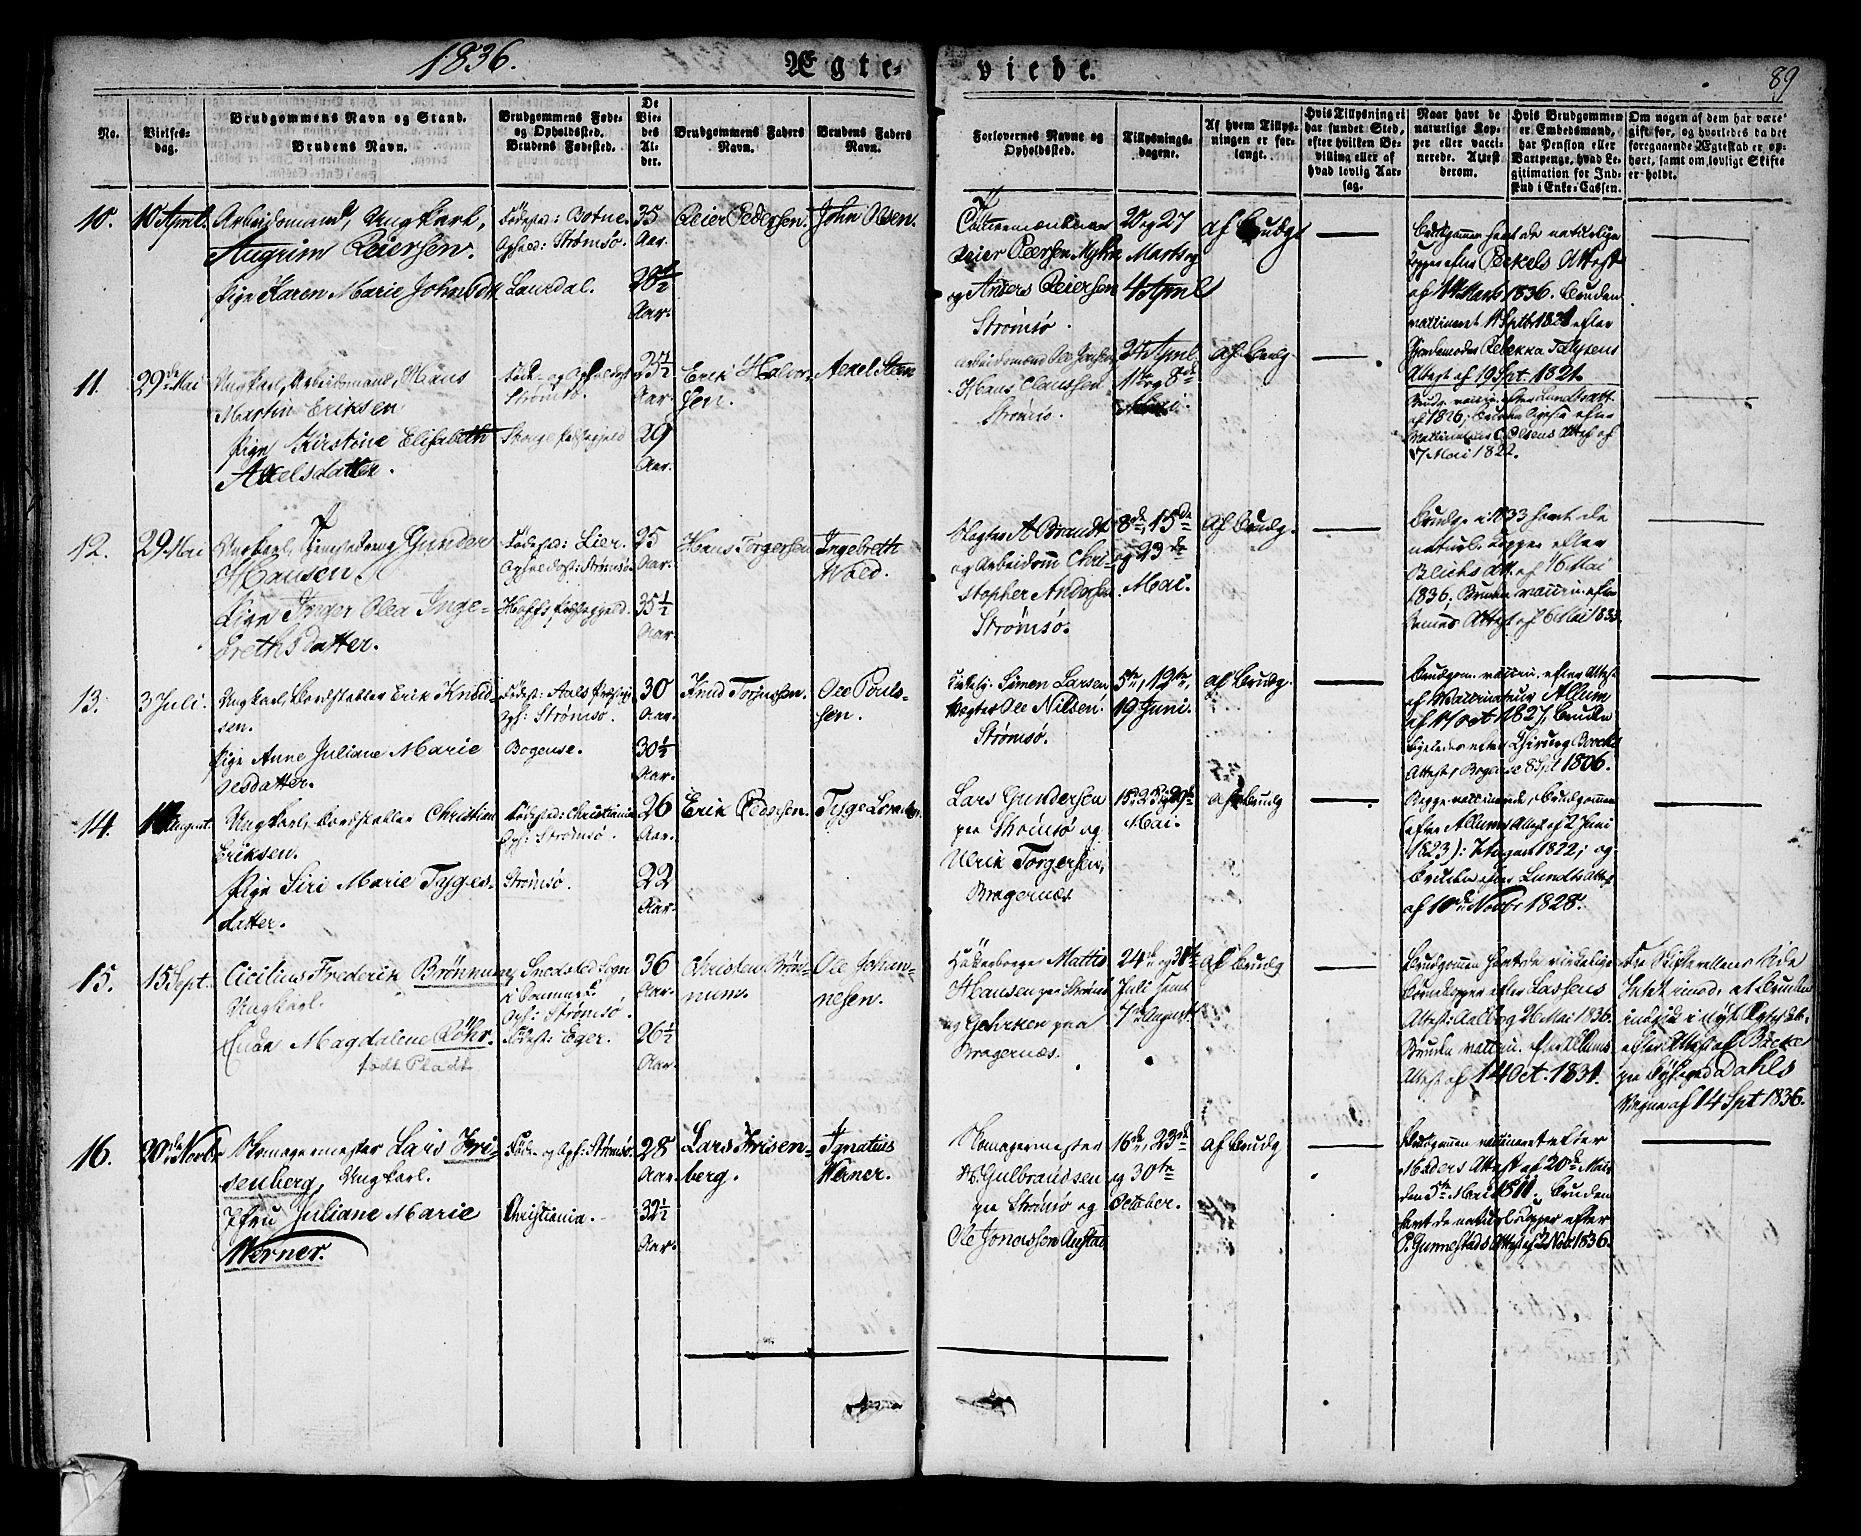 1836.
Ægte-
viede.
89
No.
Vielses-
dag.
Brudgommens Navn og Stand.
Brudens Navn.
Brudgommens Føde-
og Opholdssted.
Brudens Fødested.
De
Vie-
des
Al-
der.
Brudgommens Faders
Navn.
Brudens Faders
Navn.
Forlovernes Navne og
Opholdssted.
Tillysnings-
dagene.
Af hvem Tillys-
ningen er for-
langt.
Hvis Tillysning ei
har fundet Sted,
efter hvilken Be-
villing eller af
hvad lovlig Aar-
sag.
Naar havt de
naturlige Kop-
per eller vacci-
nerede. Attest
derom.
Hvis Brudgommen
er Embedsmand,
har Pension eller
Vartpenge, hvad Le-
gitimation for Ind-
skud i Enke-Cassen.
Om nogen af dem har være
gift før, og hvorledes da det
foregaaende Ægteskab er op-
hørt, samt om lovligt Skifte
er holdt.
10.
10 April
Arbeidsmand, Ungkarl,
Augrim Reiersen.
Pige Karen Marie Johnsdtt
Fødested: Botne
Ophold: Strømsø.
Laurdal.
35
Aar.
28½
Aar.
Reier Pedersen.
John Olsen.
Reier Peersen
og Anders Reiersen
Strømsø.
20 og 27
Marts og
4 April
af Brudg
Brudgommen havt de naturlige
Kopper efter Attest
af 14 Marts 1836. Bruden
vaccineret Septb 1821 efter
Rebekka
Attest af 19 Spt. 1821.
11.
29de Mai
Ungkarl, Arbeidsmand, Hans
Martin Eriksen
Pige Kirstine Elisabeth
Axelsdatter.
Føde- og Opholdsst
Strømsø.
25½
Aar.
29
Aar.
Erik Halvor-
sen.
Axel Steen
Arbeidsmænd Ole Jensen
Hans Claussen
Strømsø.
24 April,
1te og 8de
Mai.
af Brudg.
af 1826, Bruden
Attest af
7 Mai 1822.
12.
29 Mai
Ungkarl, Gunder
Hansen.
Pige Inger Olea Inge-
brethsdatter.
Fødested: Lier.
Opholdst: Strømsø.
35
Aar.
35½
Aar.
Hans Torgersen
Ingebreth
Wold.
Slagter A Brandt
og Arbeidsm Chri-
stopher Andersen
Strømsø.
8de, 15de
og 23de
Mai.
af Brudg.
Brudg. i 1833 havt de
naturl. Kopper efter
Blichs Att. af 16 Mai
1836. Bruden vaccin. efter
Attest af 6 Mai 183
13.
3 Juli.
Ungkarl, Bordstabler Erik Knud-
sen.
Pige Anne Juliane Marie
Olesdatter.
Fødest: Aals Præstegj
Oph: Strømsø.
Bogense.
30
Aar.
30½
Aar.
Knud Torgussen.
Ole Pouls-
sen.
Simen Larsen
Slagter Ole Nilsen
Strømsø.
5te, 12te,
19 Juni.
af Brudg.
Brudgom. vaccin. efter Attest
af Vaccinateur Allum
af 17 Oct 1827. Bruden
ligeledes efter Chirurg Boecks
Attest, Bogense 1806.
14.
August.
Ungkarl, Bordstabler Christian
Eriksen.
Pige Siri Marie Tyges-
datter.
Fødested: Christiania
Oph: Strømsø.
Strømsø.
26
Aar.
22
Aar.
Erik Pedersen.
Tyge
Lars Gundersen
paa Strømsø og
Ulrik Torgersen,
Bragernæs
15de 23de 29de
Mai.
af Brudg
Begge vaccinerede, Brudgommen
(efter Allums Attest af 2 Juni
1823): 7 August 1822; og
Bruden efter Lundts Attest
af 10de Novbr 1828.
15.
15 Sept.
Cicilius Frederik Brønnum
Ungkarl.
Enke Magdalene Røhr.
født Pladt
Snedsted Sogn
Oph: Strømsø.
Fødest: Eger.
36
Aar.
26½
Aar.
Christen Brøn-
num.
Ole Johan-
nesen.
Høkerborger Mattis
Hansen paa Strømsø
og Gehrken paa
Bragernæs.
24de og 31te
Juli samt
7de August
af Brudg
Brudgommen havt de virkelige
Børnekopper efter Lassens
Attest: Aalborg 26 Mai 1836.
Bruden vaccin. efter Allums
Attest af 14 Oct. 1831.
Fra Skifterettens Side
Intet imod, at Bruden
indgik i nyt Ægteskab
efter Attest af
paa Byfoged Dahls
Vegne af 14 Spt 1836.
16.
20de Novbr
Skomagermester Lars Fri-
senberg, Ungkarl.
Jfru Juliane Marie
Werner.
Føde- og Oph: Strømsø.
Christiania.
28
Aar.
32½
Aar.
Lars Frisen-
berg.
Ignatius
Werner.
Skomagermester
H. Gulbrandsen
paa Strømsø og
Ole Jonassen Anstad
16de, 23de
og 30te
October.
af Brudg
Brudgommen vaccineret efter
Møders Attest af 20de Mai
den 5te Mai 1811, Bruden
havt de naturl Kopper efter
P. Gunnestads Attest af 2 Nov. 1836.